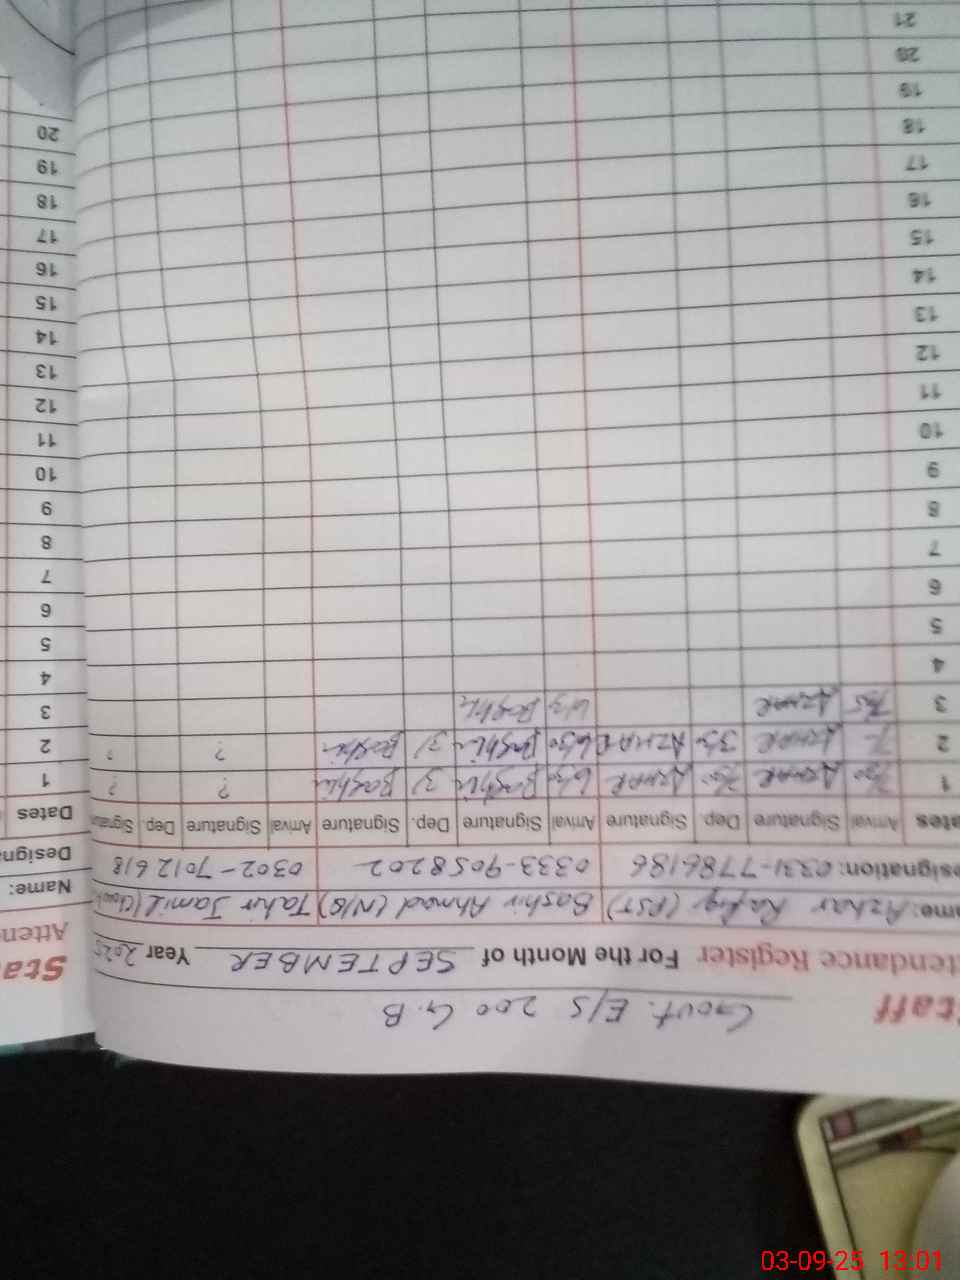 Staff
Govt. E/S 200 G.B
tendance Register For the Month of SEPTEMBER Year 2025
me: Azhar Rafiq (PST) Bashir Ahmad (N/Q) Tahir Jamil (
esignation: 0331-7786186 0333-9058202 0302-7012618
ates Arrival Signature Dep. Signature Arrival Signature Dep. Signature Arrival Signature Dep. Signatur
1 7/30 AZHAR AZHAR Bashir 3/ Bashir ? ?
2 7- AZHAR AZHAR Bashir 3/ Bashir ? ?
3 AZHAR Bashir
4
5
6
7
8
9
10
11
12
13
14
15
16
17
18
19
20
21
Sta
Atten
Name:
Designa
Dates
1
2
3
4
5
6
7
8
9
10
11
12
13
14
15
16
17
18
19
20
03-09-25 13:01